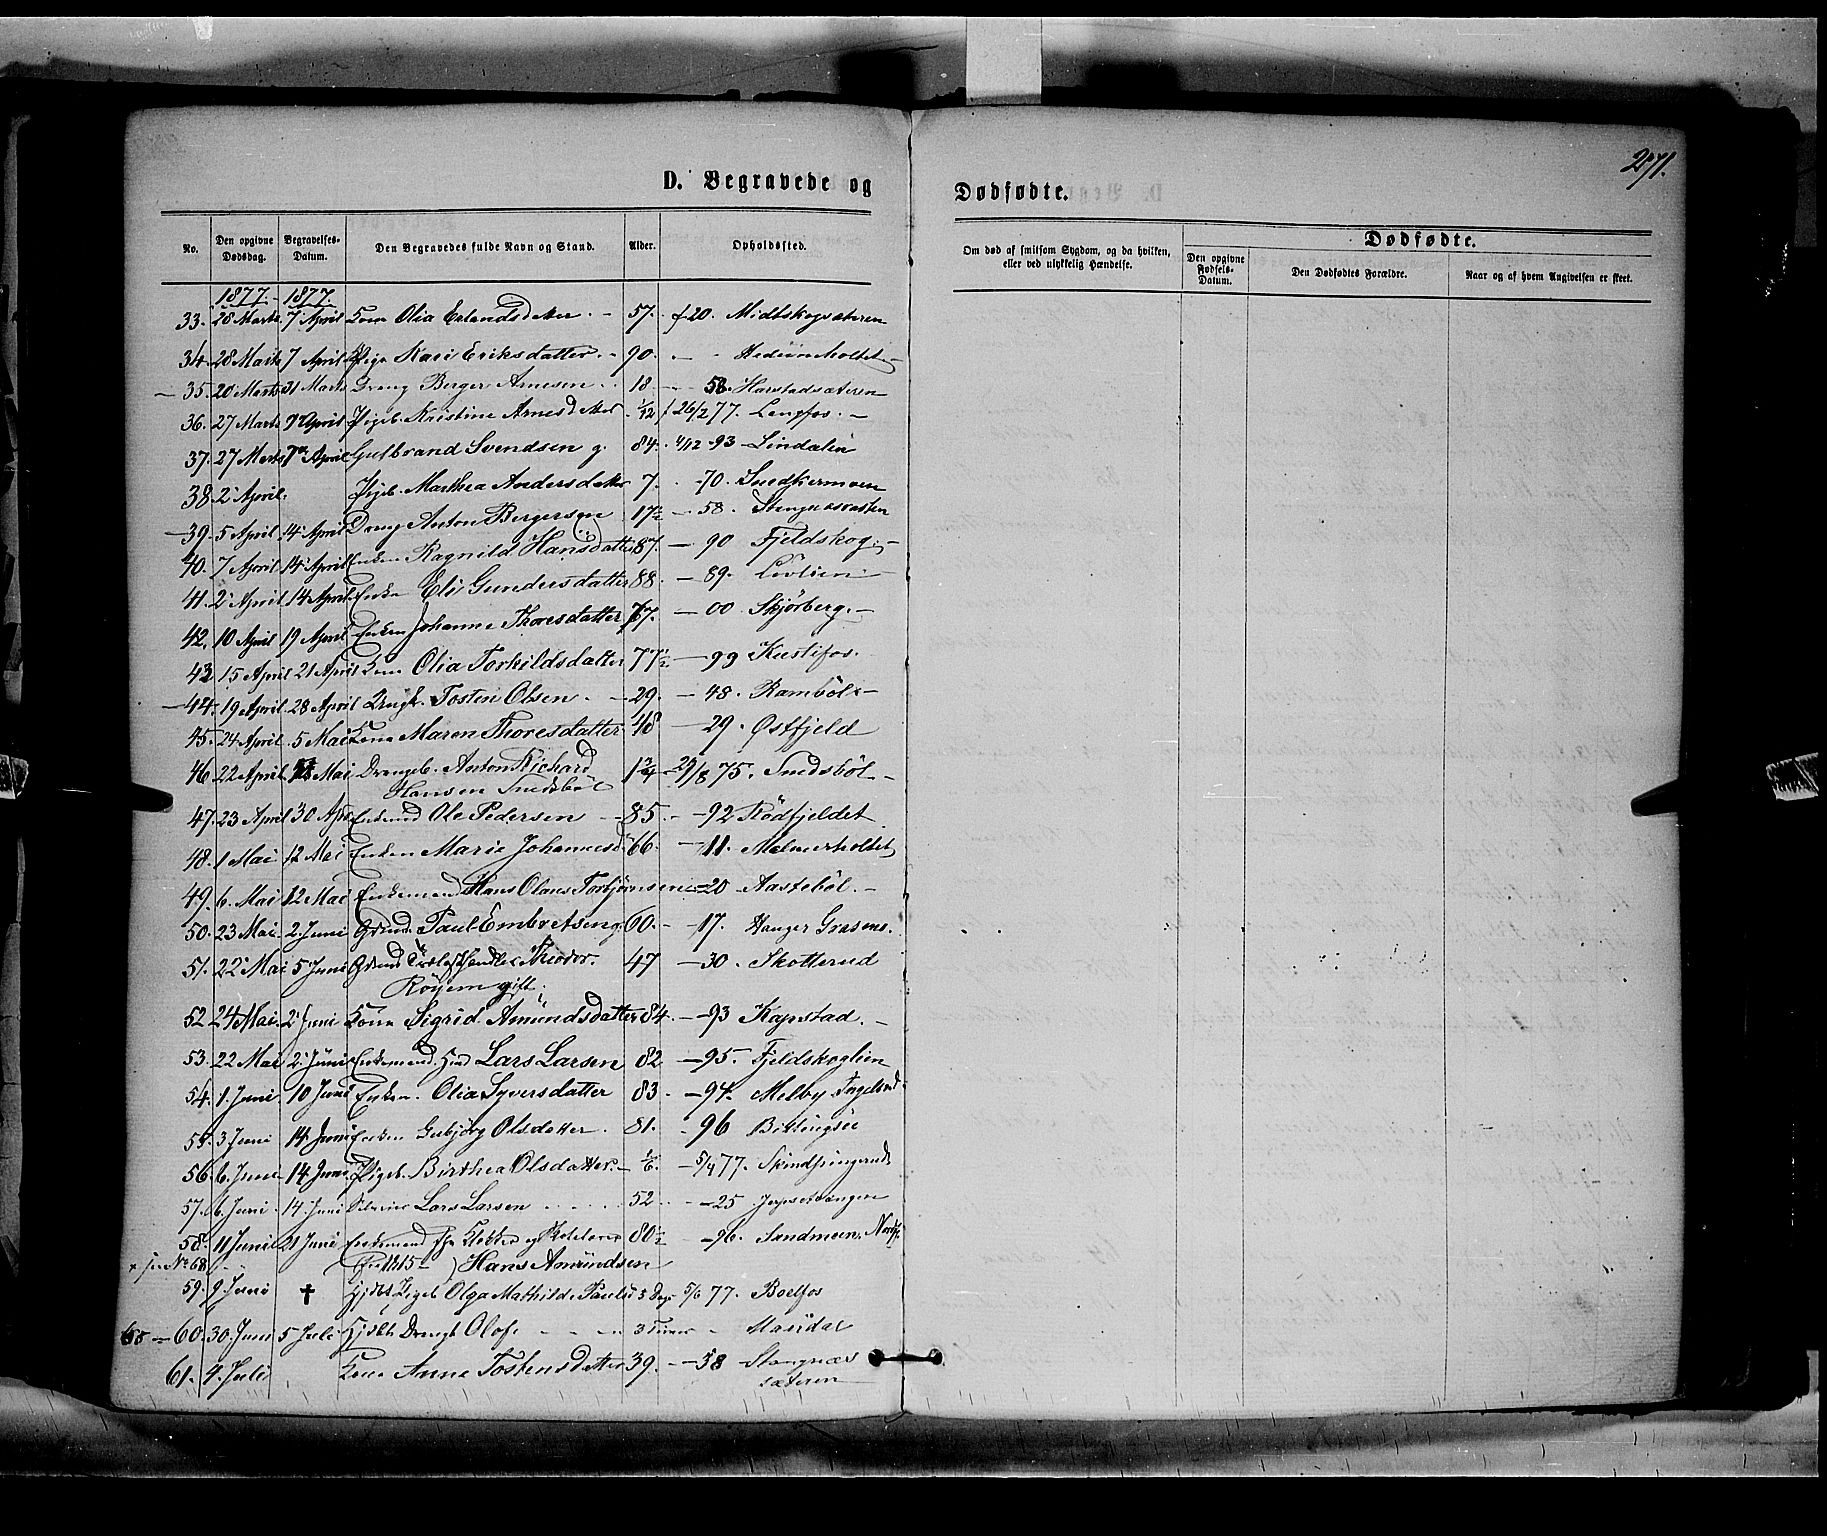 271.
D. Begravede og Dødfødte.
No. Den opgivne Dødsdag. Begravelses-Datum. Den Begravedes fulde Navn og Stand. Alder. Opholdssted. Om død af smitsom Sygdom, og da hvilken, eller ved ulykkelig Hændelse. Dødfødte.
Den opgivne Fødsels-Datum. Den Dødfødtes Forældre. Naar og af hvem Angivelsen er skeet.
1877 - 1877.
33. 28 Marts 7 April Kone Olia Erlandsdatter 57. f 20. Midtskogsæteren
34. 28 Marts 7 April Pige Kari Eriksdatter 90.
35. 20 Marts 31 Marts Dreng Berger Arnesen 18 58. Harstadsæteren
36. 27 Marts 7 April Pigeb. Kristine Arnesd 1/12 f 26/2 77. Langfos.
37. 27 Marts 7 April Gulbrand Svendsen g. 84. 4/12 93 Lindalen
38. 2 April. Pigeb. Marthea Andersd 7. 70. Snedkermoen
39. 5 April 14 April Dreng Anton Bergersen 17 1/2 58.
40. 7 April 14 April Enken Ragnild Hansdatter 87. 90 Fjeldskog.
41. 2 April 14 April Enke Eli Gundersdatter 88. 89.
42. 10 April 19 April Enken Johanne Thoresdatter 77. 00 Skjørberg.
43 15 April 21 April Kone Olia Torkildsdatter 77 1/2 99 Kustifos.
44. 19 April 28 April Tosten Olsen 29. 48. Rambøl
45. 24 April 5 Mai Kone Maren Thoresdatter 48 29. Østfjeld
46 22 April Mai Drengeb. Anton Richard 1 3/4 29/8 75. Snedsbøl
Hansen Snedsbøl
47. 23 April 30 Apr Enkemd Ole Pedersen 85. 92 Rødfjeldet
48. 1 Mai 12 Mai Enken Marie Johannesd 66. 11. Malmerholtet
49. 6. Mai 12 Mai Enkemand Hans Olaus Torbjørnsen 20 Aastebøl.
50. 23 Mai. 2 Juni Grmd. Paul Embretsen g 60. 17. Hanger Grasmo.
51. 22 Mai 5 Juni Grmd Theodor. 47 30. Skotterud
Røyem gift.
52 24 Mai. 2 Juni Kone Sigrid Amundsdatter 84. 93 Kapstad.
53. 22 Mai 2 Juni Enkemand Lars Larsen 82 95. Fjeldskoglien
54. 1 Juni 10 Juni Enken. Olia Syversdatter 83. 94. Melby
55. 3 Juni 14 Juni Enken Gubjørg Olsdatter. 81. 96
56. 6. Juni 14 Juni Pigeb. Birthea Olsdatter. 1/6. 5/4 77.
57. 6 Juni 14 Juni Lars Larsen 52 25
58. 11 Juni 21 Juni Enkemand Klokker og 80 1/2 96. Sandmoen.
No 68 Hans Amundsen
59. 9 Juni † Hjdbt Pigeb Olga Mathilde Paulsd 5 Dage 5/6 77. Boelfos
60. 30. Juni 5 Juli Hjdbt Drengb Olof. 3 Timer
61. 4. Juli Kone Anne Tostensdatter 39. 38 Stangnæs
sæteren